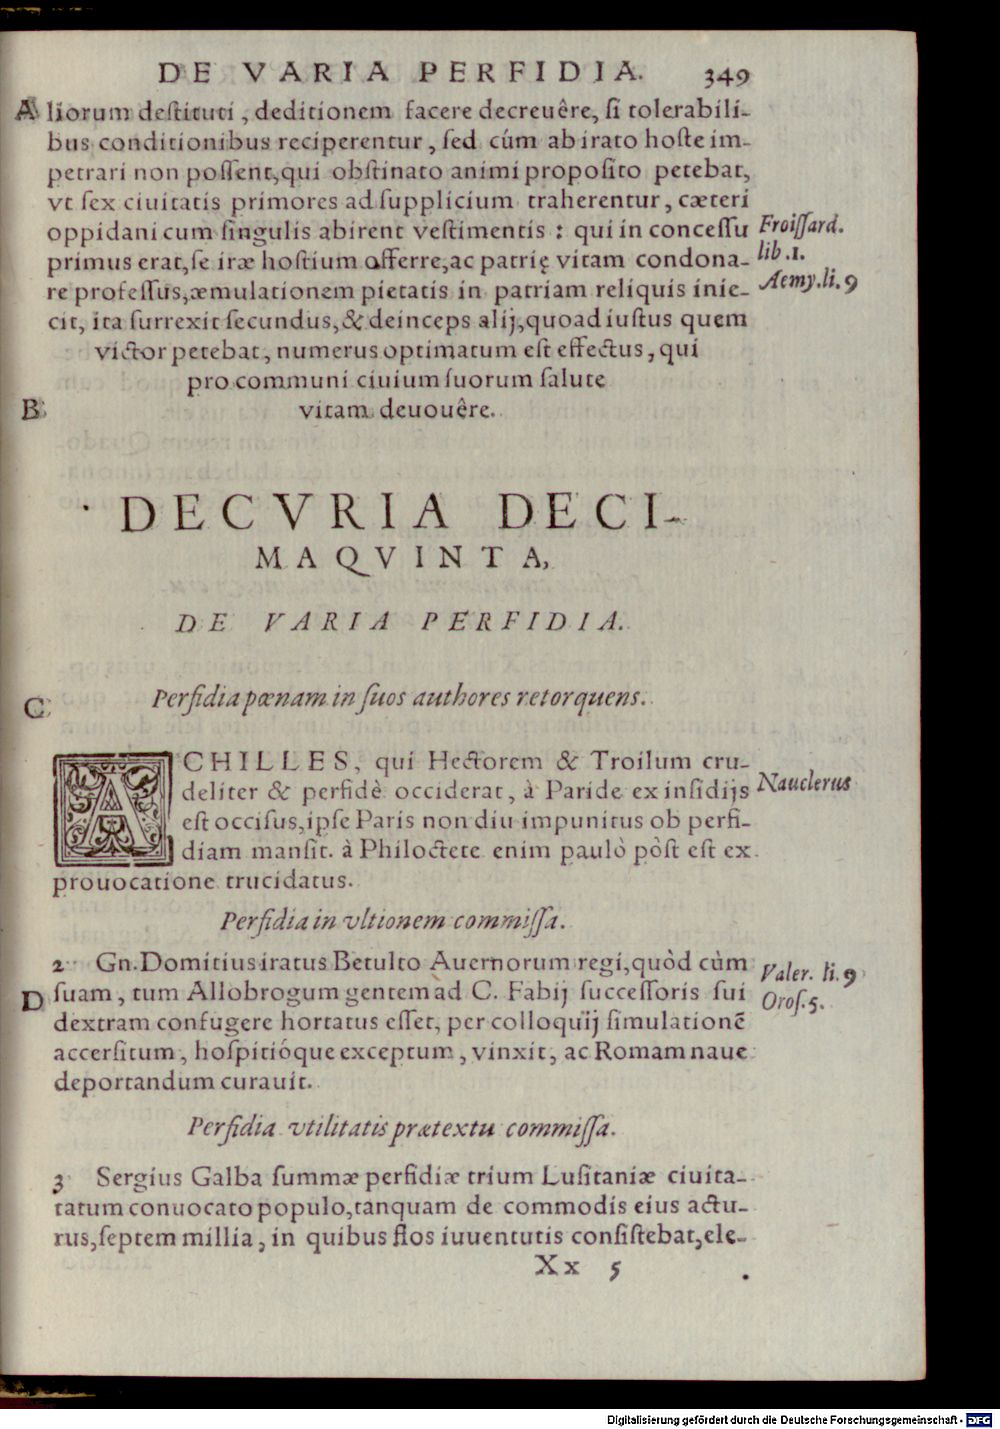 DE VARIA PERFIDIA. 349
A liorum destituti, deditionem facere decreuêre, si tolerabili-
bus conditionibus reciperentur, sed cúm ab irato hoste im-
petrari non possent, qui obstinato animi proposito petebat,
vt sex ciuitatis primores ad supplicium traherentur, cæteri
oppidani cum singulis abirent vestimentis : qui in concessu
Froissard.
lib.1.
primus erat, se iræ hostium offerre, ac patrię vitam condona-
Aemy.li.9
re professus, æmulationem pietatis in patriam reliquis inie-
cit, ita surrexit secundus, & deinceps alij, quoad iustus quem
victor petebat, numerus optimatum est effectus, qui
pro communi ciuium suorum salute
B vitam deuouêre.
DECVRIA DECI-
MAQVINTA,
DE VARIA PERFIDIA.
C Perfidia pœnam in suos authores retorquens.
ACHILLES, qui Hectorem & Troilum cru-
Nauclerus
deliter & perfidè occiderat, à Paride ex insidijs
est occisus, ipse Paris non diu impunitus ob perfi-
diam mansit. à Philoctete enim paulò pòst est ex
prouocatione trucidatus.
Perfidia in vltionem commissa.
2 Gn. Domitius iratus Betulto Auernorum regi, quòd cùm
Valer. li.9
D suam, tum Allobrogum gentem ad C. Fabij successoris sui
Oros.5.
dextram confugere hortatus esset, per colloquij simulationē
accersitum, hospitióque exceptum, vinxit, ac Romam naue
deportandum curauit.
Perfidia vtilitatis prætextu commissa.
3 Sergius Galba summæ perfidiæ trium Lusitaniæ ciuita-
tatum conuocato populo, tanquam de commodis eius actu-
rus, septem millia, in quibus flos iuuentutis consistebat, ele-
Xx 5
Digitalisierung gefördert durch die Deutsche Forschungsgemeinschaft - DFG